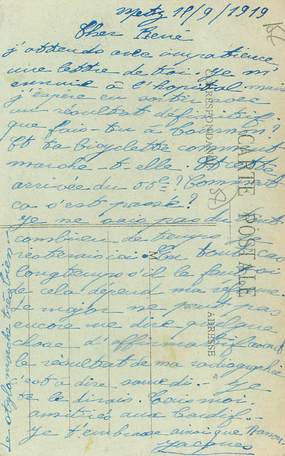 Metz 18/9/1919
Cher René
j'attends avec impatience
une lettre de toi. Je m'
ennuie à l'hopital mais
j'espère en sortir avec
un résultat définitif.
que fais-tu à
Et ta bicyclette comment
marche-t-elle. Et cette
arrivée du ? Comment
ça s'est passé?
Je ne sais pas du tout
combien de temps je
resterai ici. En tout cas
longtemps s'il le faut car
de cela dépend ma réforme.
Le major ne peut pas
encore me dire quelque
chose d'affirmatif avant
le résultat de ma radiographie
c'est à dire samedi. Je
te le dirai. Bois
amitiés aux
Je t'embrasse ainsi que Maman
Jacques
Le stylo marche très bien
CARTE POSTALE
CORRESPONDANCE
ADRESSE